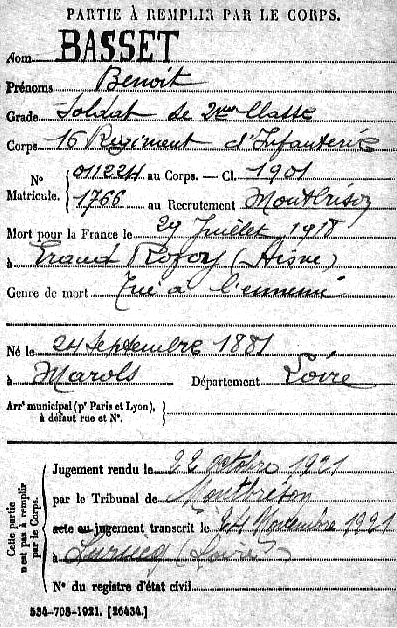 PARTIE À REMPLIR PAR LE CORPS.
Nom BASSET
Prénoms Benoit
Grade Soldat de 2me Classe
Corps 16 Régiment d'Infanterie
N° Matricule. 011224 au Corps. — Cl. 1901
1766 au Recrutement Montbrison
Mort pour la France le 29 Juillet 1918
à Grand Rozoy (Aisne)
Genre de mort Tué à l'ennemi
Né le 24 Septembre 1881
à Marols Département Loire
Arrt municipal (pr Paris et Lyon),
à défaut rue et N°.
Cette partie n'est pas à remplir par le Corps.
Jugement rendu le 22 octobre 1921
par le Tribunal de Montbrison
acte ou jugement transcrit le 24 Novembre 1921
à (Loire)
N° du registre d'état civil
534-708-1921. [26434.]